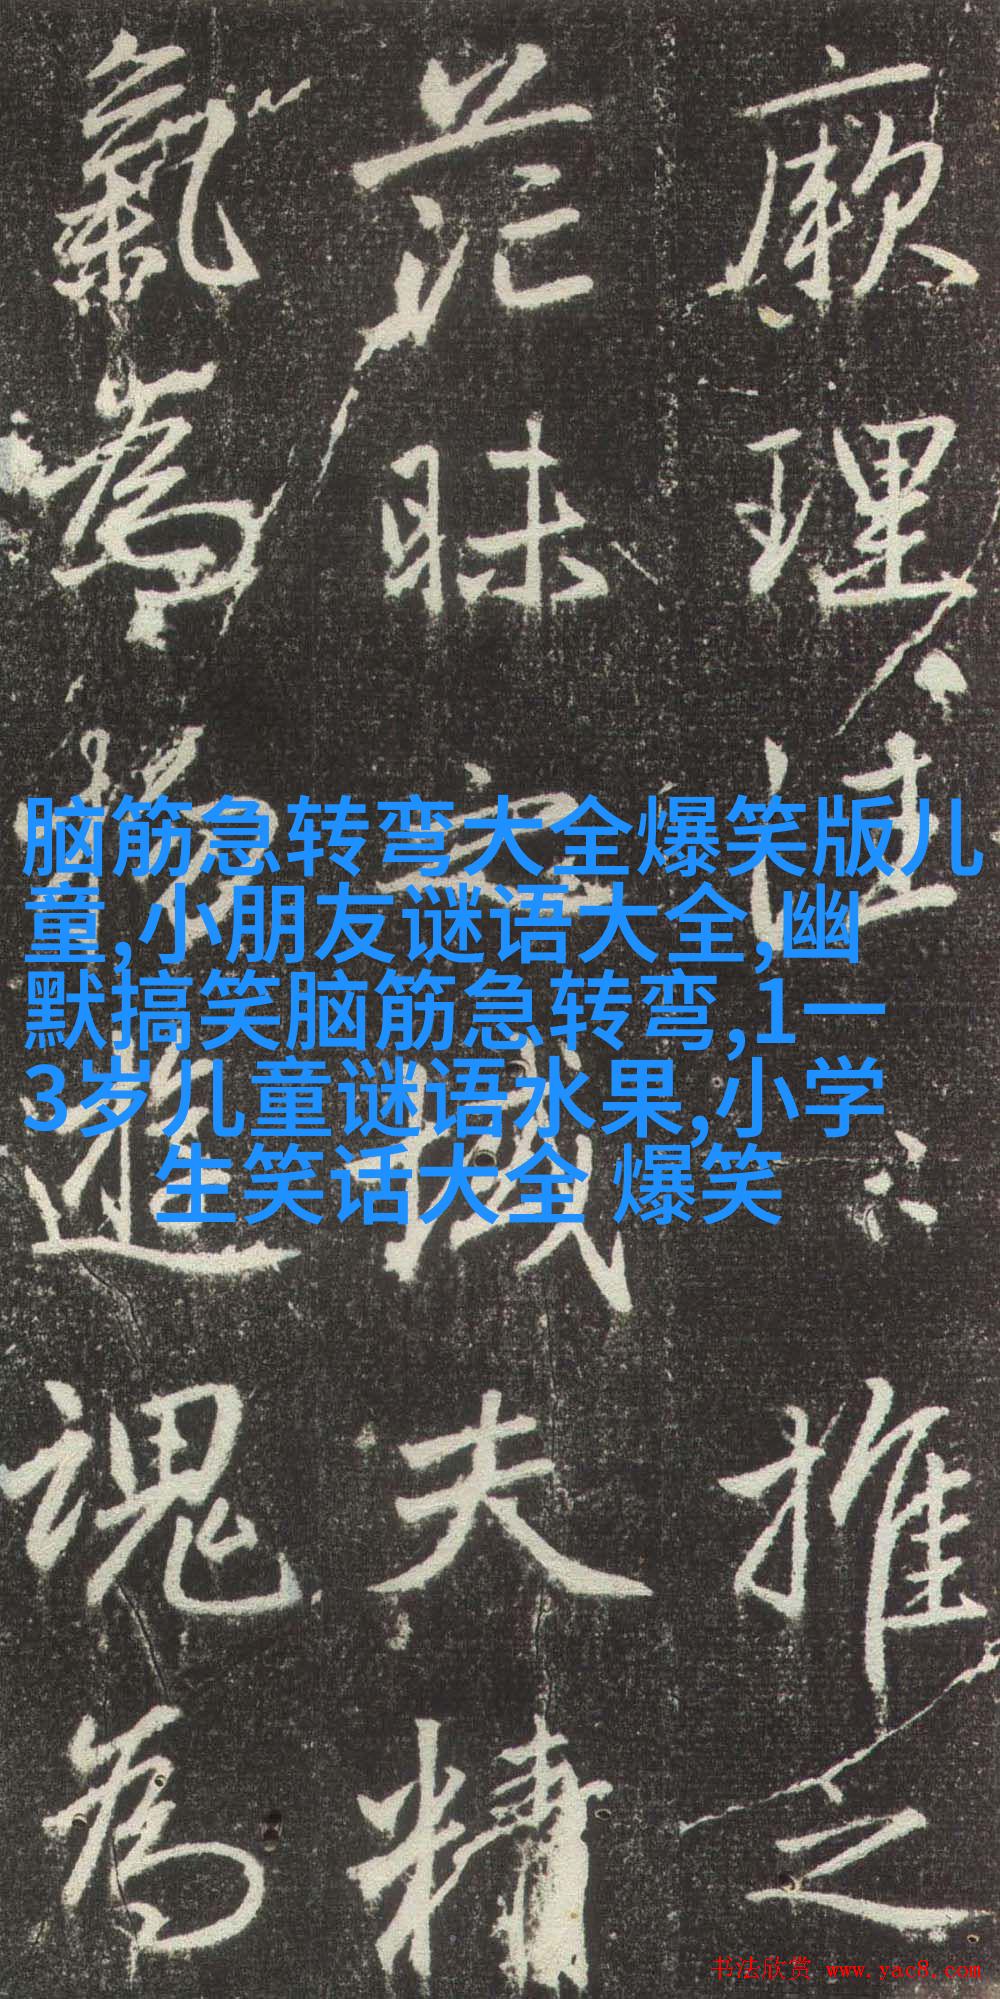 厥理推之
茫昧夫精
氣為物遊魂為
脑筋急转弯大全爆笑版儿
童,小朋友谜语大全,幽
默搞笑脑筋急转弯,1一
3岁儿童谜语水果,小学
生笑话大全 爆笑
书法欣赏 www.yac8.com